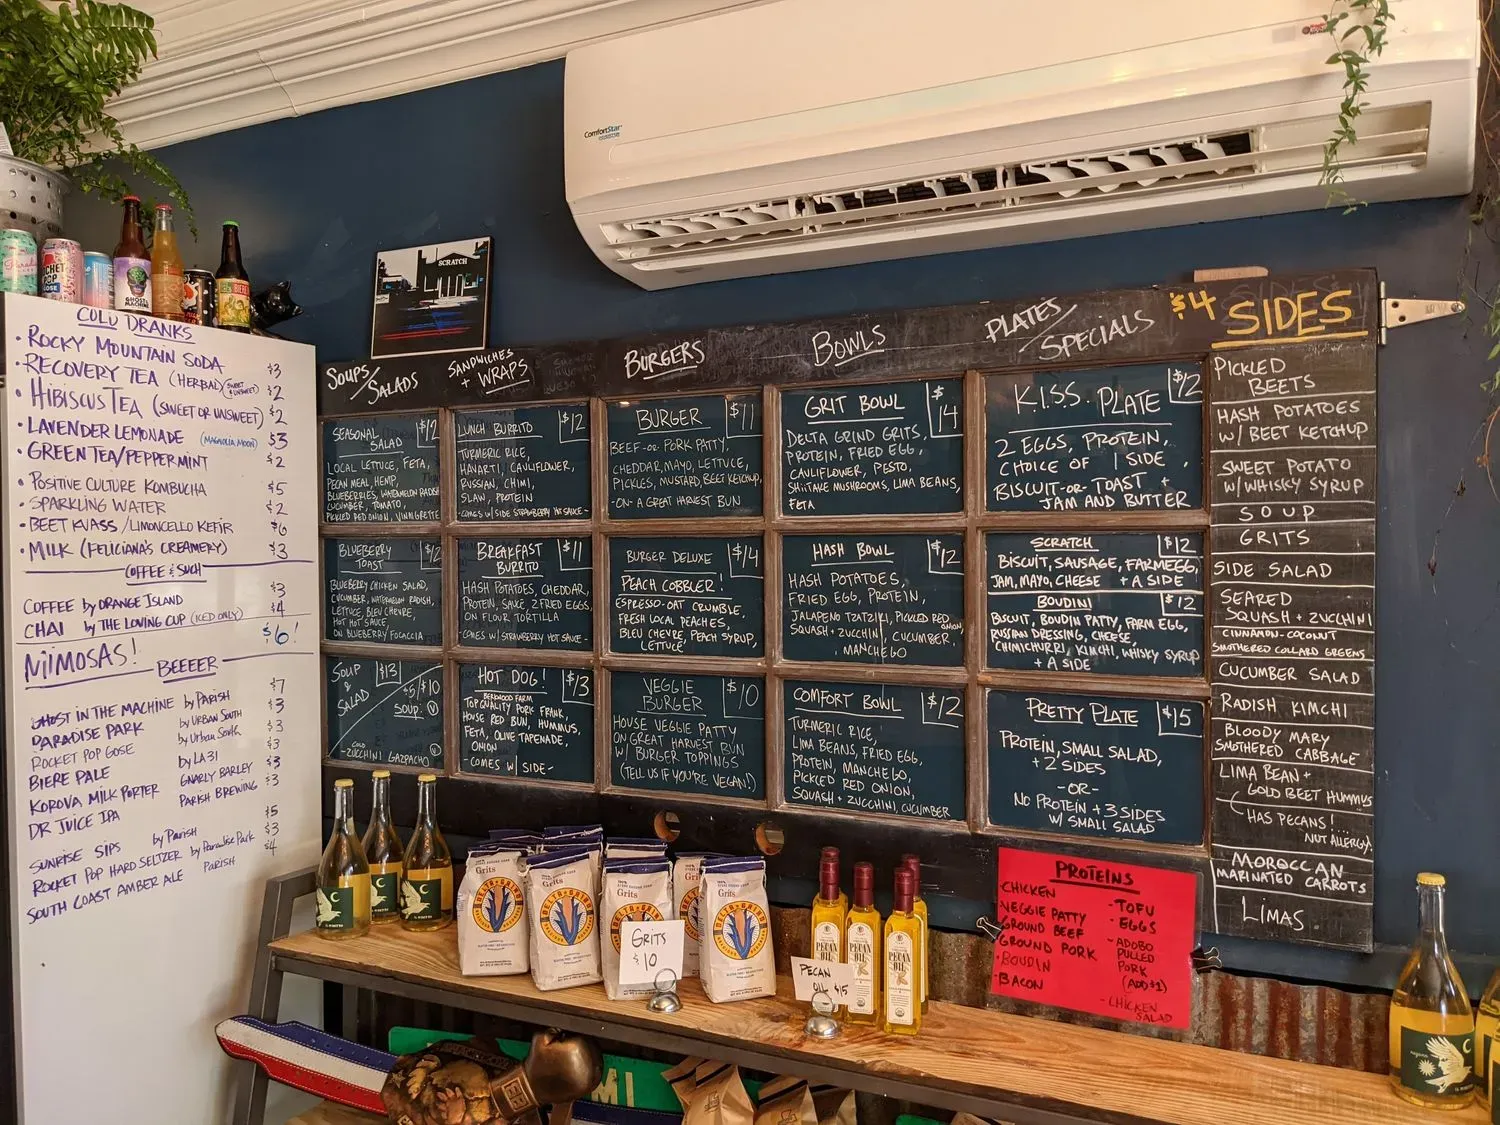 COLD DRANKS
• ROCKY MOUNTAIN SODA $3
• RECOVERY TEA (HERBAL) (SWEET + UNSWEET) $2
• HIBISCUS TEA (SWEET OR UNSWEET) $2
• LAVENDER LEMONADE (MAGNOLIA MOON) $3
• GREEN TEA/PEPPERMINT $2
• POSITIVE CULTURE KOMBUCHA $5
• SPARKLING WATER $2
• BEET KVASS/LIMONCELLO KEFIR $6
• MILK (FELICIANA'S CREAMERY) $3
COFFEE & SUCH
COFFEE by ORANGE ISLAND $3
CHAI by THE LOVING CUP (ICED ONLY) $4
MIMOSAS! $6!
BEEEER
GHOST IN THE MACHINE by PARISH $7
PARADISE PARK by URBAN SOUTH $3
ROCKET POP GOSE by Urban South $3
BIERE PALE by LA 31 $3
KOROVA MILK PORTER GNARLY BARLEY $3
DR JUICE IPA PARISH BREWING $3
SUNRISE SIPS by Parish $5
ROCKET POP HARD SELTZER by Paradise Park $3
SOUTH COAST AMBER ALE PARISH $4
ComfortStar
SCRATCH
SOUPS/SALADS
SEASONAL SALAD $12
LOCAL LETTUCE, FETA,
PECAN MEAL, HEMP,
BLUEBERRIES, WATERMELON RADISH
CUCUMBER, TOMATO,
PICKLED RED ONION, VINAIGRETTE
BLUEBERRY TOAST $12
BLUEBERRY CHICKEN SALAD,
CUCUMBER, WATERMELON RADISH,
LETTUCE, BLEU CHEVRE,
HOT HOT SAUCE,
ON BLUEBERRY FOCACCIA
SOUP & SALAD $13
$5/$10
SOUP: V
COLD
- ZUCCHINI GAZPACHO V
SANDWICHES + WRAPS
LUNCH BURRITO $12
TURMERIC RICE,
HAVARTI, CAULIFLOWER,
RUSSIAN, CHIMI,
SLAW, PROTEIN
- COMES W/ SIDE STRAWBERRY HOT SAUCE -
BREAKFAST BURRITO $11
HASH POTATOES, CHEDDAR,
PROTEIN, SAUCE, 2 FRIED EGGS,
ON FLOUR TORTILLA
- COMES W/ STRAWBERRY HOT SAUCE -
HOT DOG! $13
TOP QUALITY PORK FRANK,
HOUSE RED BUN, HUMMUS,
FETA, OLIVE TAPENADE,
ONION
- COMES W/ SIDE -
BURGERS
BURGER $11
BEEF -or- PORK PATTY,
CHEDDAR, MAYO, LETTUCE,
PICKLES, MUSTARD, BEET KETCHUP,
- ON - A GREAT HARVEST BUN
BURGER DELUXE $14
PEACH COBBLER!
ESPRESSO-OAT CRUMBLE,
FRESH LOCAL PEACHES,
BLEU CHEVRE, PEACH SYRUP,
LETTUCE
VEGGIE BURGER $10
HOUSE VEGGIE PATTY
ON GREAT HARVEST BUN
W/ BURGER TOPPINGS
(TELL US IF YOU'RE VEGAN!)
BOWLS
GRIT BOWL $14
DELTA GRIND GRITS,
PROTEIN, FRIED EGG,
CAULIFLOWER, PESTO,
SHIITAKE MUSHROOMS, LIMA BEANS,
FETA
HASH BOWL $12
HASH POTATOES,
FRIED EGG, PROTEIN,
JALAPENO TZATZIKI, PICKLED RED ONION,
SQUASH + ZUCCHINI, CUCUMBER,
MANCHEGO
COMFORT BOWL $12
TURMERIC RICE,
LIMA BEANS, FRIED EGG,
PROTEIN, MANCHEGO,
PICKLED RED ONION,
SQUASH + ZUCCHINI, CUCUMBER
PLATES/SPECIALS
K.I.S.S. PLATE $12
2 EGGS, PROTEIN,
CHOICE OF 1 SIDE
BISCUIT -OR- TOAST +
JAM AND BUTTER
SCRATCH $12
BISCUIT, SAUSAGE, FARM EGG,
JAM, MAYO, CHEESE + A SIDE
BOUDINI $12
BISCUIT, BOUDIN PATTY, FARM EGG,
RUSSIAN DRESSING, CHEESE,
CHIMICHURRI, KIMCHI, WHISKY SYRUP
+ A SIDE
PRETTY PLATE $15
PROTEIN, SMALL SALAD,
+ 2 SIDES
- OR -
NO PROTEIN + 3 SIDES
W/ SMALL SALAD
$4 SIDES
PICKLED BEETS
HASH POTATOES
W/ BEET KETCHUP
SWEET POTATO
W/ WHISKY SYRUP
SOUP
GRITS
SIDE SALAD
SEARED
SQUASH + ZUCCHINI
CINNAMON-COCONUT
SMOTHERED COLLARD GREENS
CUCUMBER SALAD
RADISH KIMCHI
BLOODY MARY
SMOTHERED CABBAGE
LIMA BEAN +
GOLD BEET HUMMUS
HAS PECANS!
NUT ALLERGY
MOROCCAN
MARINATED CARROTS
LIMAS
PROTEINS
- CHICKEN
- VEGGIE PATTY
- GROUND BEEF
- GROUND PORK
- BOUDIN
- BACON
- TOFU
- EGGS
- ADOBO
PULLED
PORK
(ADD $1)
- CHICKEN
SALAD
Grits
DELTA GRIND
GRITS
$10
PECAN
OIL $15
PECAN
OIL